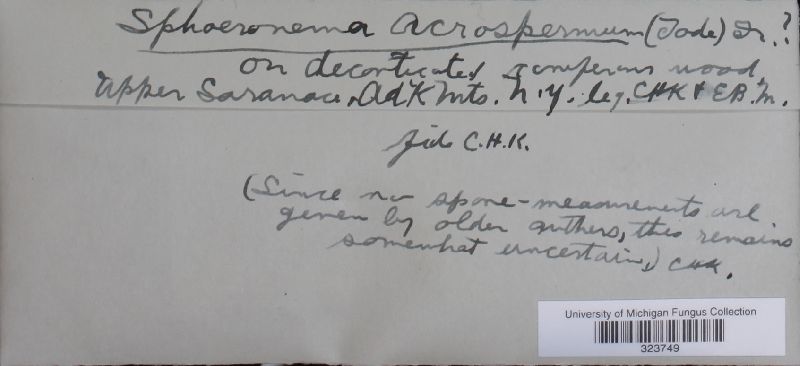 Sphaeronema acrospermum (Tode) Fr.?
on decorticated coniferous wood.
Upper Saranac, Ad'K Mts. N.Y. leg. CHK & EB.M.
fide C.H.K.
(Since no spore-measurements are
given by older authors, this remains
somewhat uncertain,) CHK.
University of Michigan Fungus Collection
323749